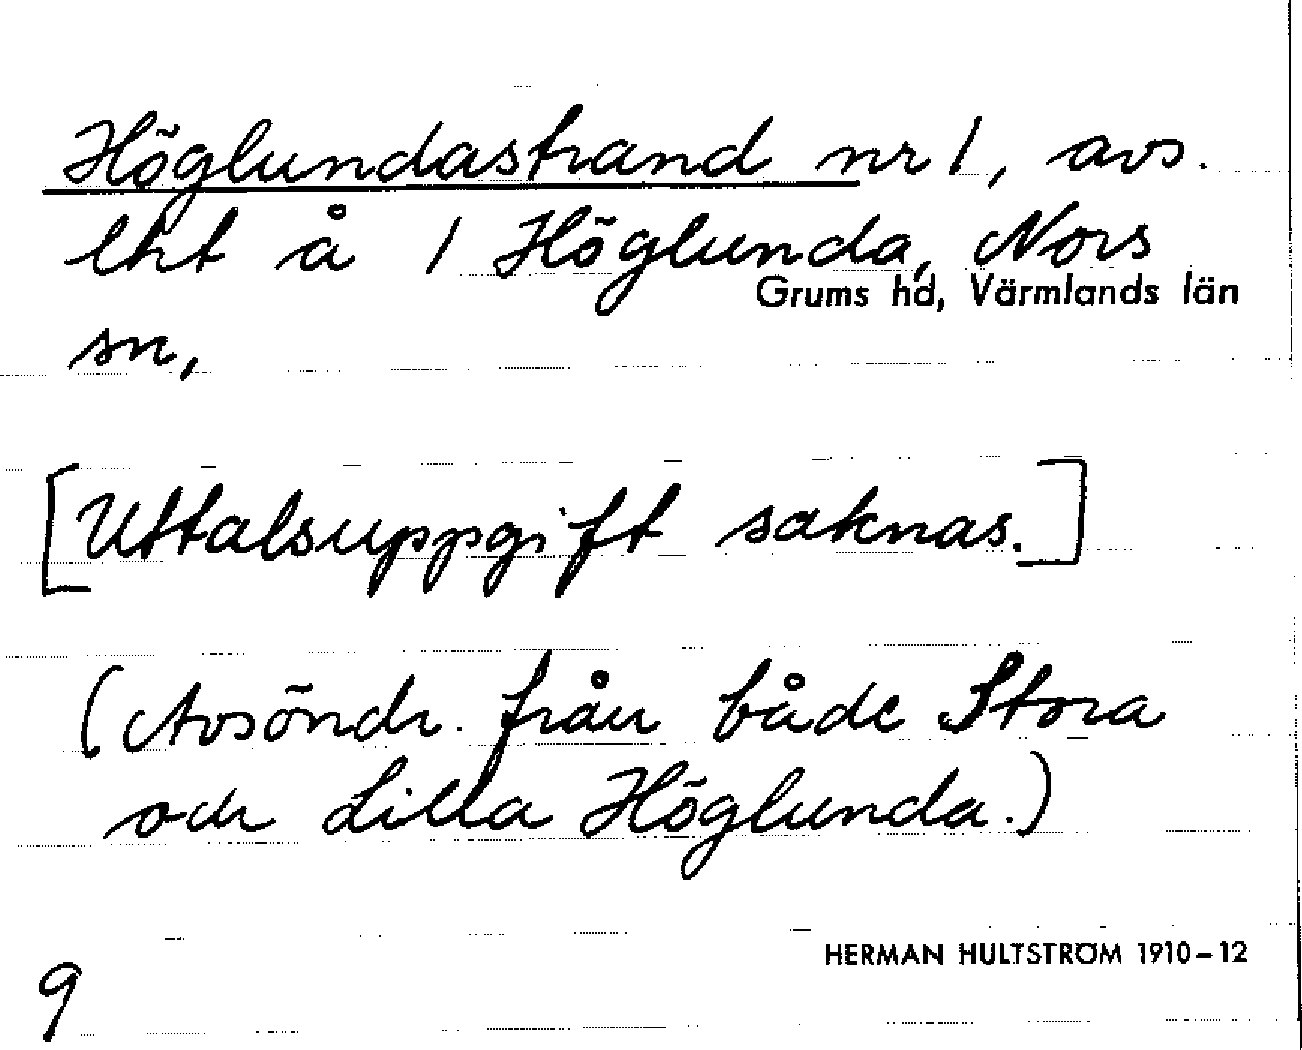 Höglundastrand nr 1, avs.
lht å 1 Höglunda, Nors
Grums hd, Värmlands län
sn,
[Uttalsuppgift saknas.]
(Avsöndr. från både Stora
och Lilla Höglunda.)
HERMAN HULTSTRÖM 1910-12
9